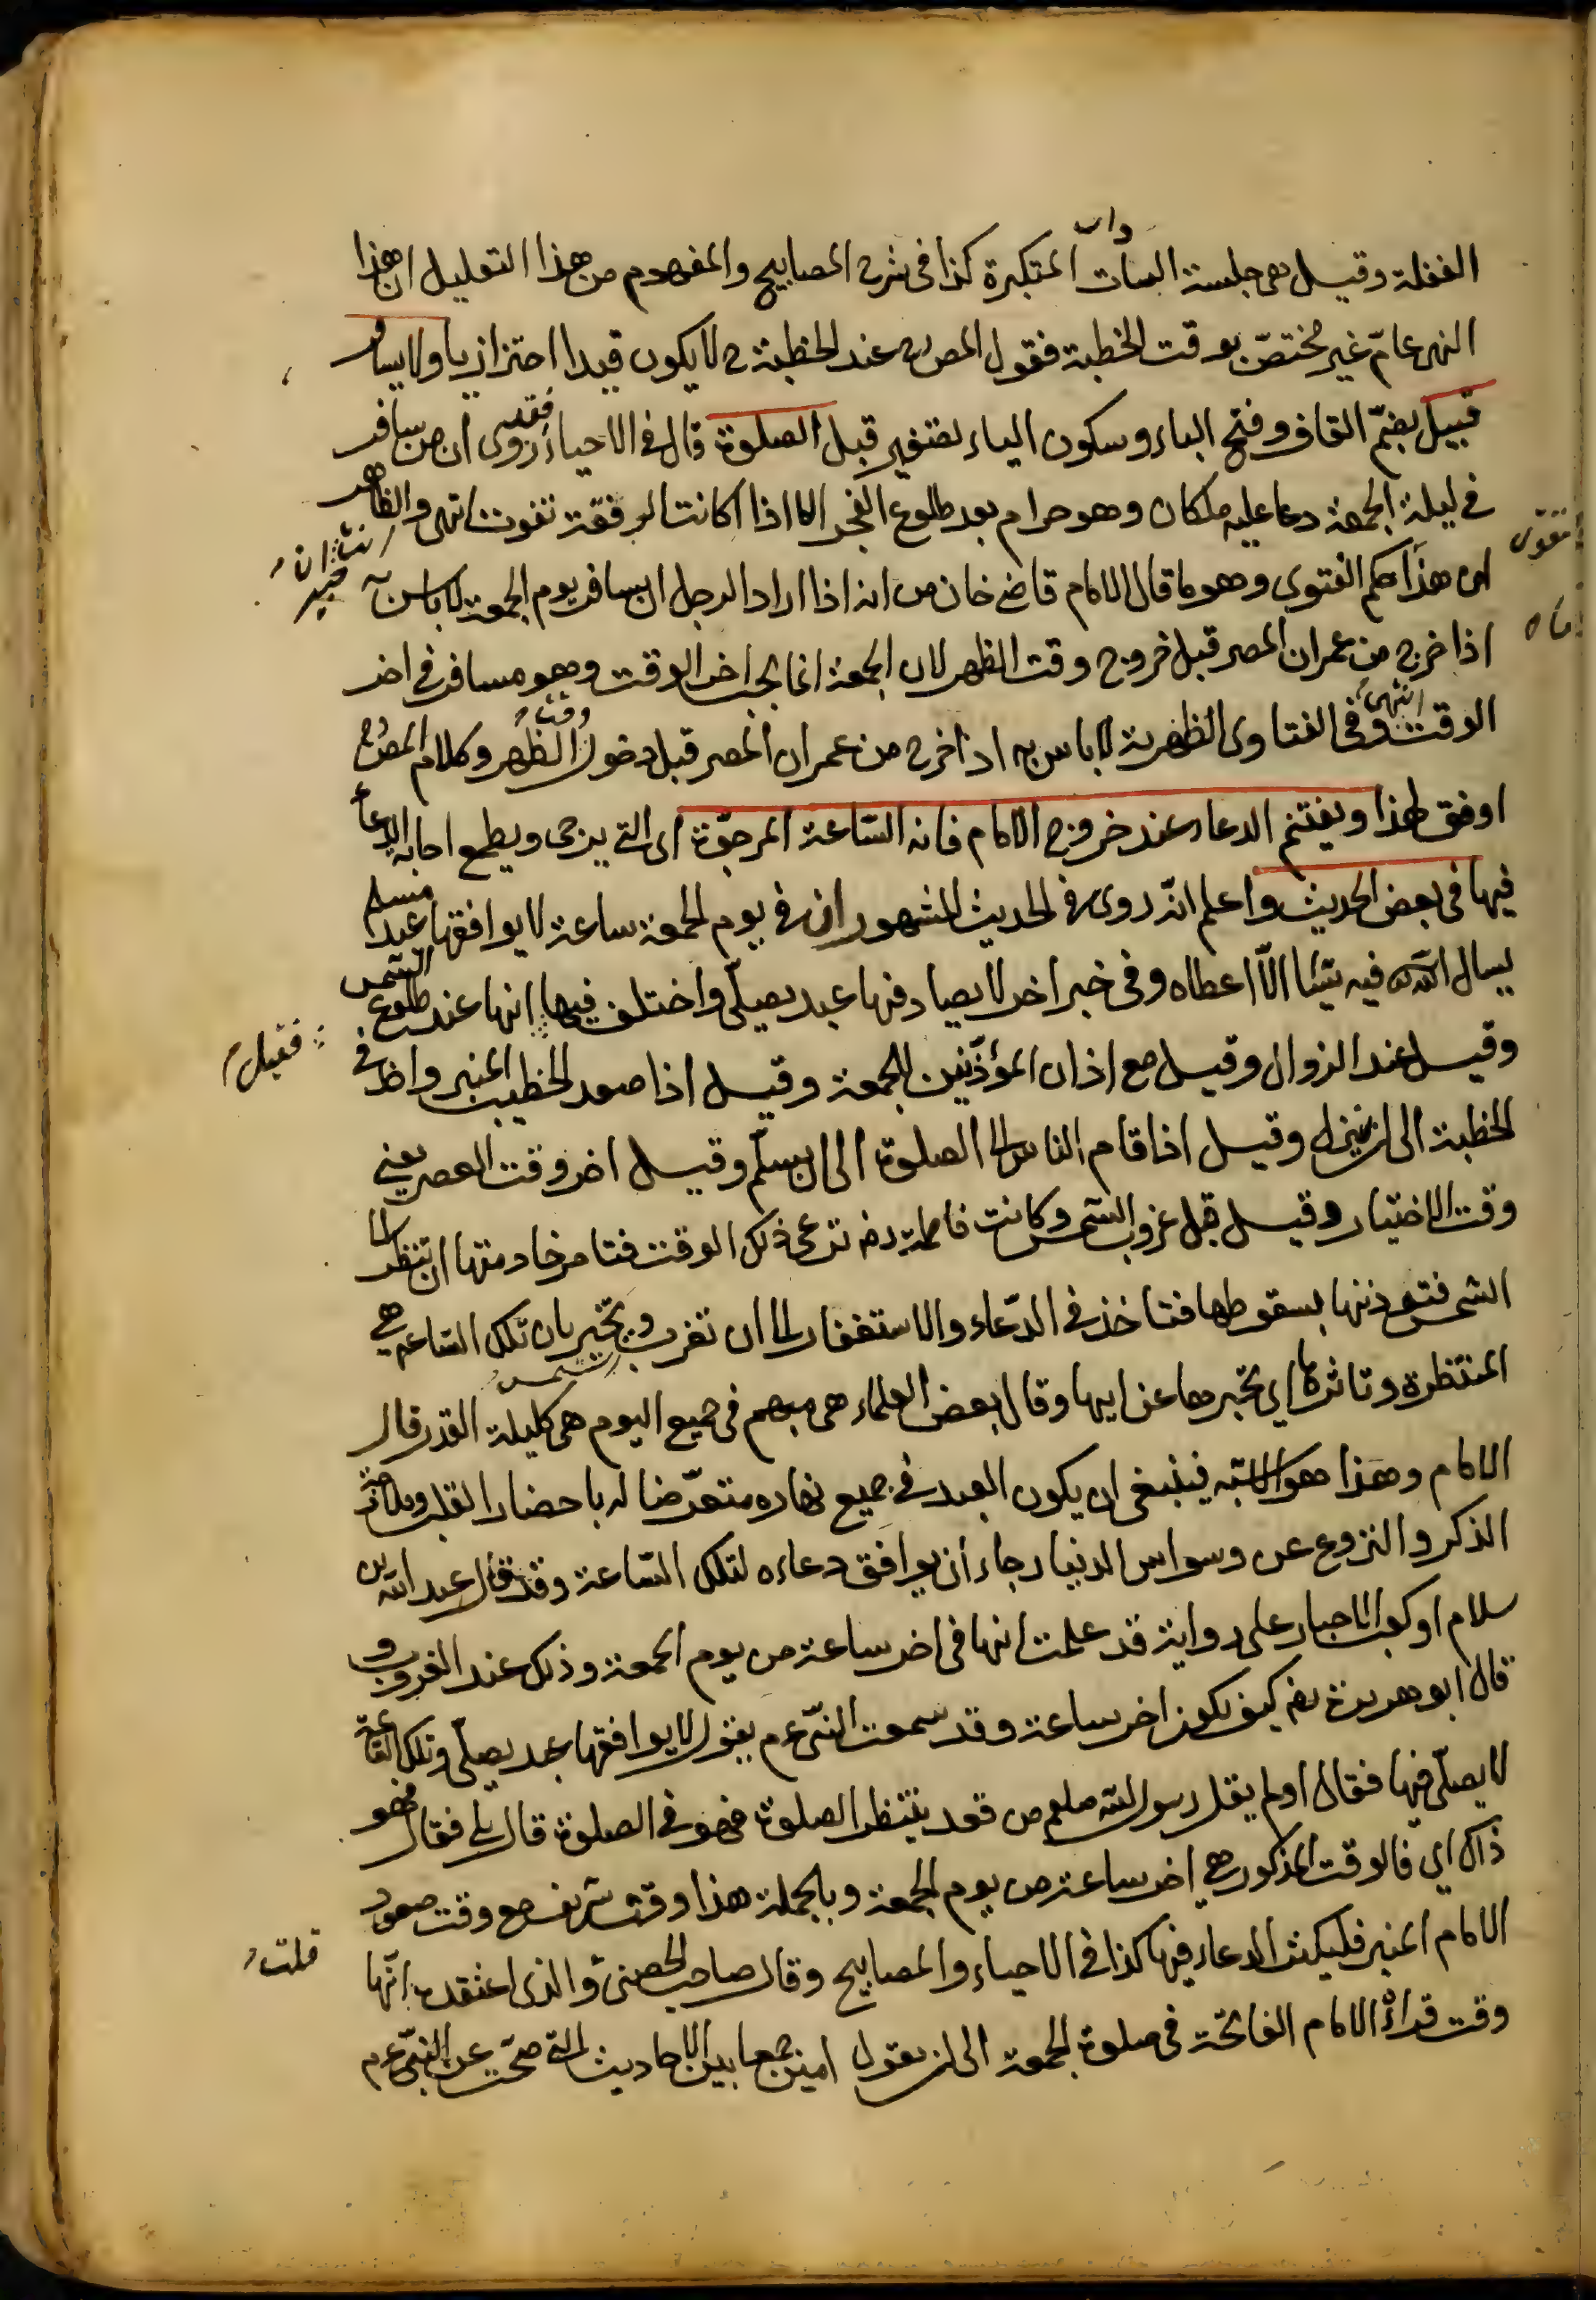 الغفلة وقيل هى جلسة السادات المتكبرة كذا فى شرح المصابيح والمفهوم من هذا التعليل ان هذا
النهى عامّ غير مختصّ بوقت الخطبة فقول المص رح عند الخطبة ح لا يكون قيدا احترازيا ولا يسافر
قبيل بضمّ القاف وفتح الباء وسكون الياء تصغير قبل الصلوة قال فى الاحياء فقد روى ان من سافر
فى ليلة الجمعة دعا عليه ملكان وهو حرام بعد طلوع الفجر الا اذا كانت الرفقة تفوت انتهى والظاهر
ان هذا حكم الفتوى وهو ما قال الامام قاضى خان من انه اذا اراد الرجل ان يسافر يوم الجمعة لا باس به
اذا خرج من عمران المصر قبل خروج وقت الظهر لان الجمعة انما تجب اخر الوقت وهو مسافر فى اخر
الوقت انتهى وفى الفتاوى الظهيرية لا باس به اذا خرج من عمران المصر قبل دخول وقت الظهر وكلام المص رح
اوفق لهذا ويغتنم الدعاء عند خروج الامام فانه السّاعة المرجوّة اى التى يرجى ويطمع اجابة الدعاء
فيها فى بعض الحديث واعلم انّه روى فى الحديث المشهور ان فى يوم الجمعة ساعة لا يوافقها عبد مسلم
يسال الله فيه شيئا الّا اعطاه وفى خبر اخر لا يصادفها عبد يصلّى واختلف فيها انها عند طلوع الشمس
فقيل
وقيل عند الزوال وقيل مع اذان المؤذّنين للجمعة وقيل اذا صعد الخطيب المنبر واخذ فى
الخطبة الى ان ينزل وقيل اذا قام الناس الى الصلوة الى ان يسلّم وقيل اخر وقت العصر يعنى
وقت الاختيار وقيل قبل غروب الشمس وكانت فاطمة رضه ترعى ذلك الوقت فتامر خادمتها ان تنظر الى
الشمس فتوذنها بسقوطها فتاخذ فى الدّعاء والاستغفار الى ان تغرب الشمس وتخبر بان تلك السّاعة هى
المنتظرة وتاثرها اى تخبرها عن ابيها وقال بعض العلماء هى مبهم فى جميع اليوم هى كليلة القدر قال
الامام وهذا هو الاشبه فينبغى ان يكون العبد فى جميع نهاره متعرّضا له باحضار القلب وملازمة
الذكر والنزوع عن وسواس الدنيا رجاء ان يوافق دعاءه لتلك السّاعة وقد قال عبد الله بن
سلام او كعب الاحبار على رواية قد علمت انها فى اخر ساعة من يوم الجمعة وذلك عند الغروب و
قال ابو هريرة رضه كيف يكون اخر ساعة وقد سمعت النبىّ عم يقول لا يوافقها عبد يصلّى وتلك السّاعة
لا يصلّى فيها فقال اولم يقل رسول الله صلعم من قعد ينتظر الصلوة فهو فى الصلوة قال بلى فقال فهو
ذاك اى فالوقت المذكور هى اخر ساعة من يوم الجمعة وبالجملة هذا وقت شريف مع وقت صعود
الامام المنبر فليكثر الدعاء فيها كذا فى الاحياء والمصابيح وقال صاحب الحصن والذى اعتقده انّها
قلت
وقت قراءة الامام الفاتحة فى صلوة الجمعة الى ان يقول امين جمعا بين الاحاديث التى صحّت عن النبىّ عم